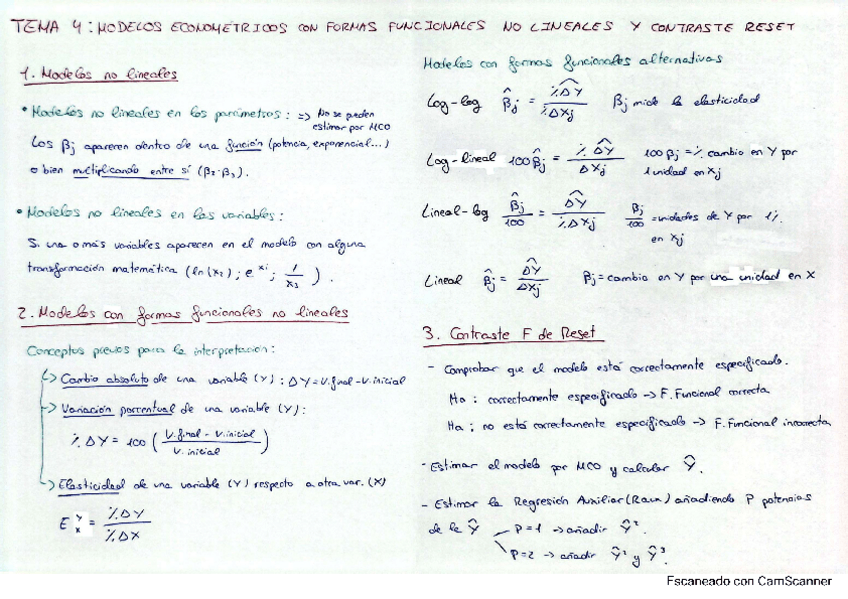 TEMA 4: MODELOS ECONOMÉTRICOS CON FORMAS FUNCIONALES NO LINEALES Y CONTRASTE RESET
1. Modelos no lineales
• Modelos no lineales en los parámetros: => No se pueden
estimar por MCO
Los βj aparecen dentro de una función (potencia, exponencial...)
o bien multiplicando entre sí (β2·β3).
• Modelos no lineales en las variables:
Si una o más variables aparecen en el modelo con alguna
transformación matemática (ln(x2); e^xi; 1/x3).
2. Modelos con formas funcionales no lineales
Conceptos previos para la interpretación:
↳ Cambio absoluto de una variable (Y): ΔY = V.final - V.inicial
↳ Variación porcentual de una variable (Y):
%ΔY = 100 (V.final - V.inicial / V.inicial)
↳ Elasticidad de una variable (Y) respecto a otra var. (X)
E Y/X = %ΔY / %ΔX
Modelos con formas funcionales alternativas
Log-log β̂j = %ΔŶ / %ΔXj βj mide la elasticidad
Log-lineal 100β̂j = %ΔŶ / ΔXj 100βj = % cambio en Y por
1 unidad en Xj
Lineal-log β̂j/100 = ΔŶ / %ΔXj βj/100 = unidades de Y por 1%
en Xj
Lineal β̂j = ΔŶ / ΔXj βj = cambio en Y por una unidad en X
3. Contraste F de Reset
- Comprobar que el modelo está correctamente especificado.
Ho: correctamente especificado → F. Funcional correcta
Ha: no está correctamente especificado → F. Funcional incorrecta
- Estimar el modelo por MCO y calcular Ŷ.
- Estimar la Regresión Auxiliar (Raux) añadiendo P potencias
de la Ŷ
P=1 → añadir Ŷ².
P=2 → añadir Ŷ² y Ŷ³.
Escaneado con CamScanner